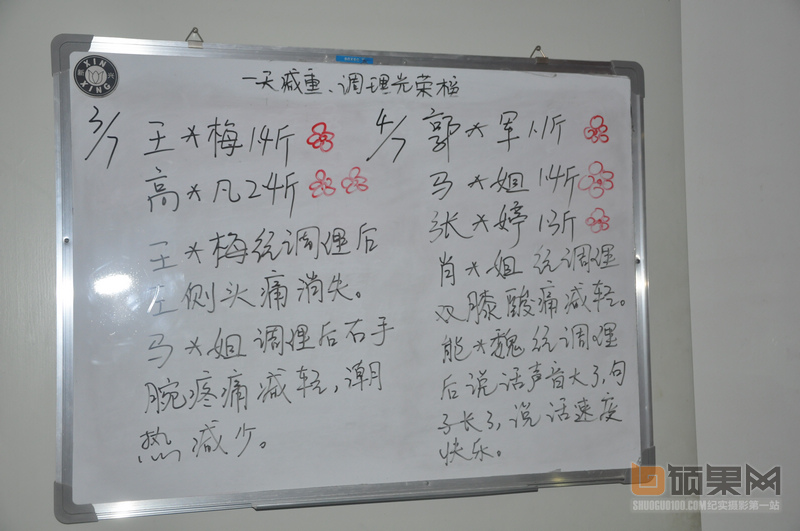 XIN
XING
一天减重、调理光荣榜
3/7 王*梅1.4斤
高*凡2.4斤
王*梅统调理后
左侧头痛消失。
马*姐调理后右手
腕疼痛减轻,潮
热减少。
4/7 郭*军1.1斤
马*姐1.4斤
张*婷1.3斤
肖*姐统调理
双膝酸痛减轻。
能*魏统调理
后说话声音大了,句
子长了,说话速度
快乐。
硕果网
SHUOGUO100.COM纪实摄影第一站